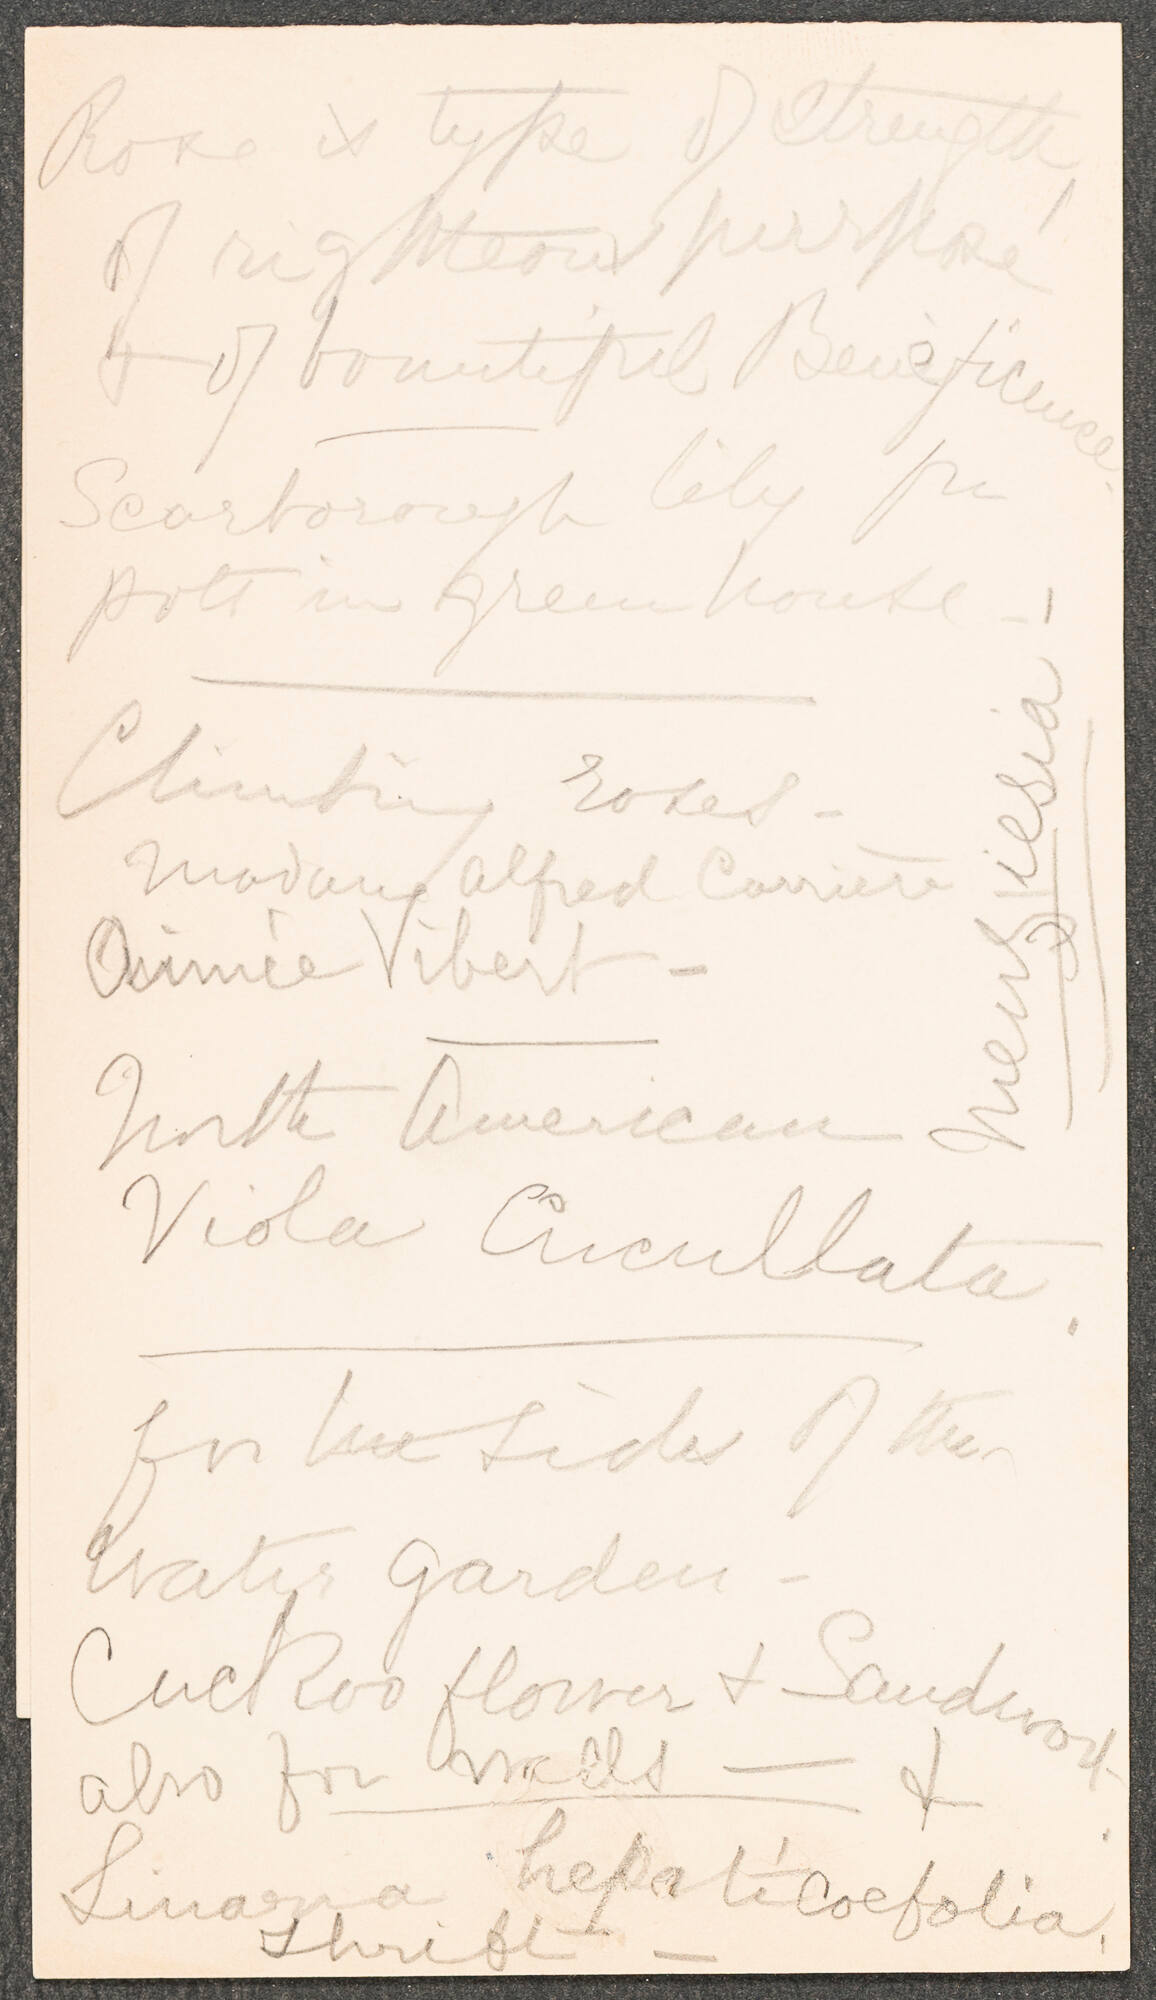 Rose is type of strength
of righteous purpose
& of bountiful Beneficence.
Scarborough lily for
pots in green house -
Climbing roses -
Madame Alfred Carriere
Aimée Vibert -
North American
Viola Cucullata.
for the sides of the
water garden -
Cuckoo flower & Sandwort.
also for walls - &
Linaria hepaticoefolia.
Thrift -
Menziesia